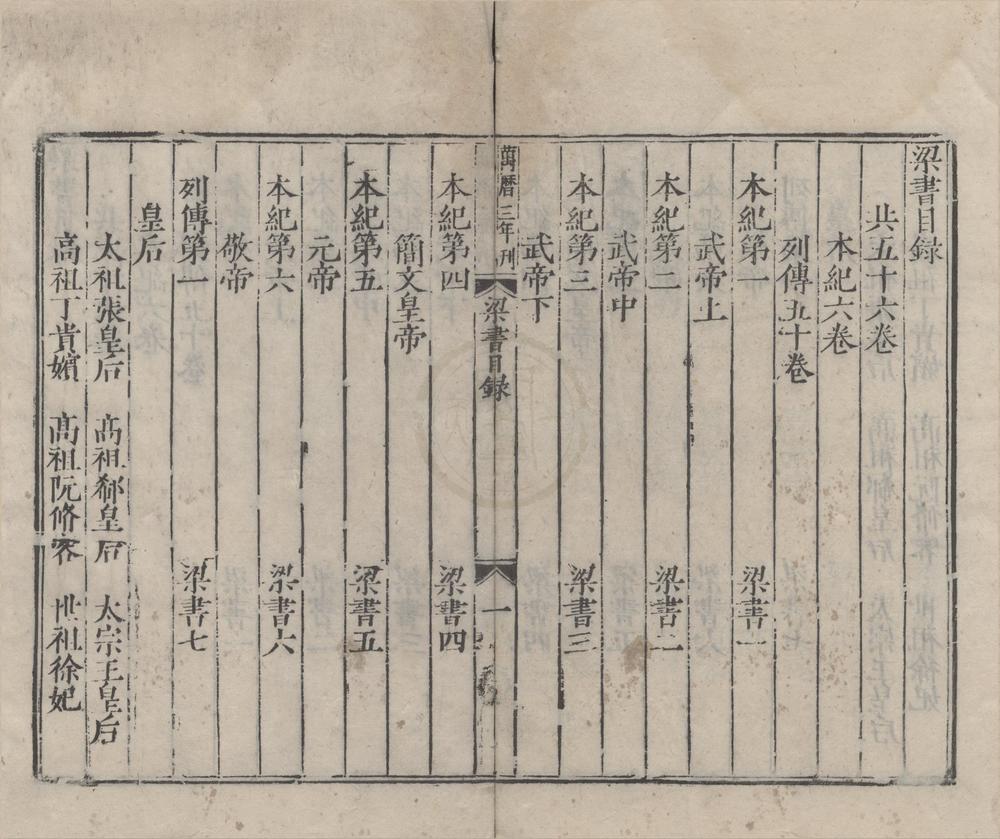 梁書目録
共五十六卷
本紀六卷
列傳五十卷
本紀第一 梁書一
武帝上
本紀第二 梁書二
武帝中
本紀第三 梁書三
武帝下
萬曆三年刊 梁書目録 一
本紀第四 梁書四
簡文皇帝
本紀第五 梁書五
元帝
本紀第六 梁書六
敬帝
列傳第一 梁書七
皇后
太祖張皇后 髙祖郗皇后 太宗王皇后
髙祖丁貴嬪 髙祖阮脩容 世祖徐妃